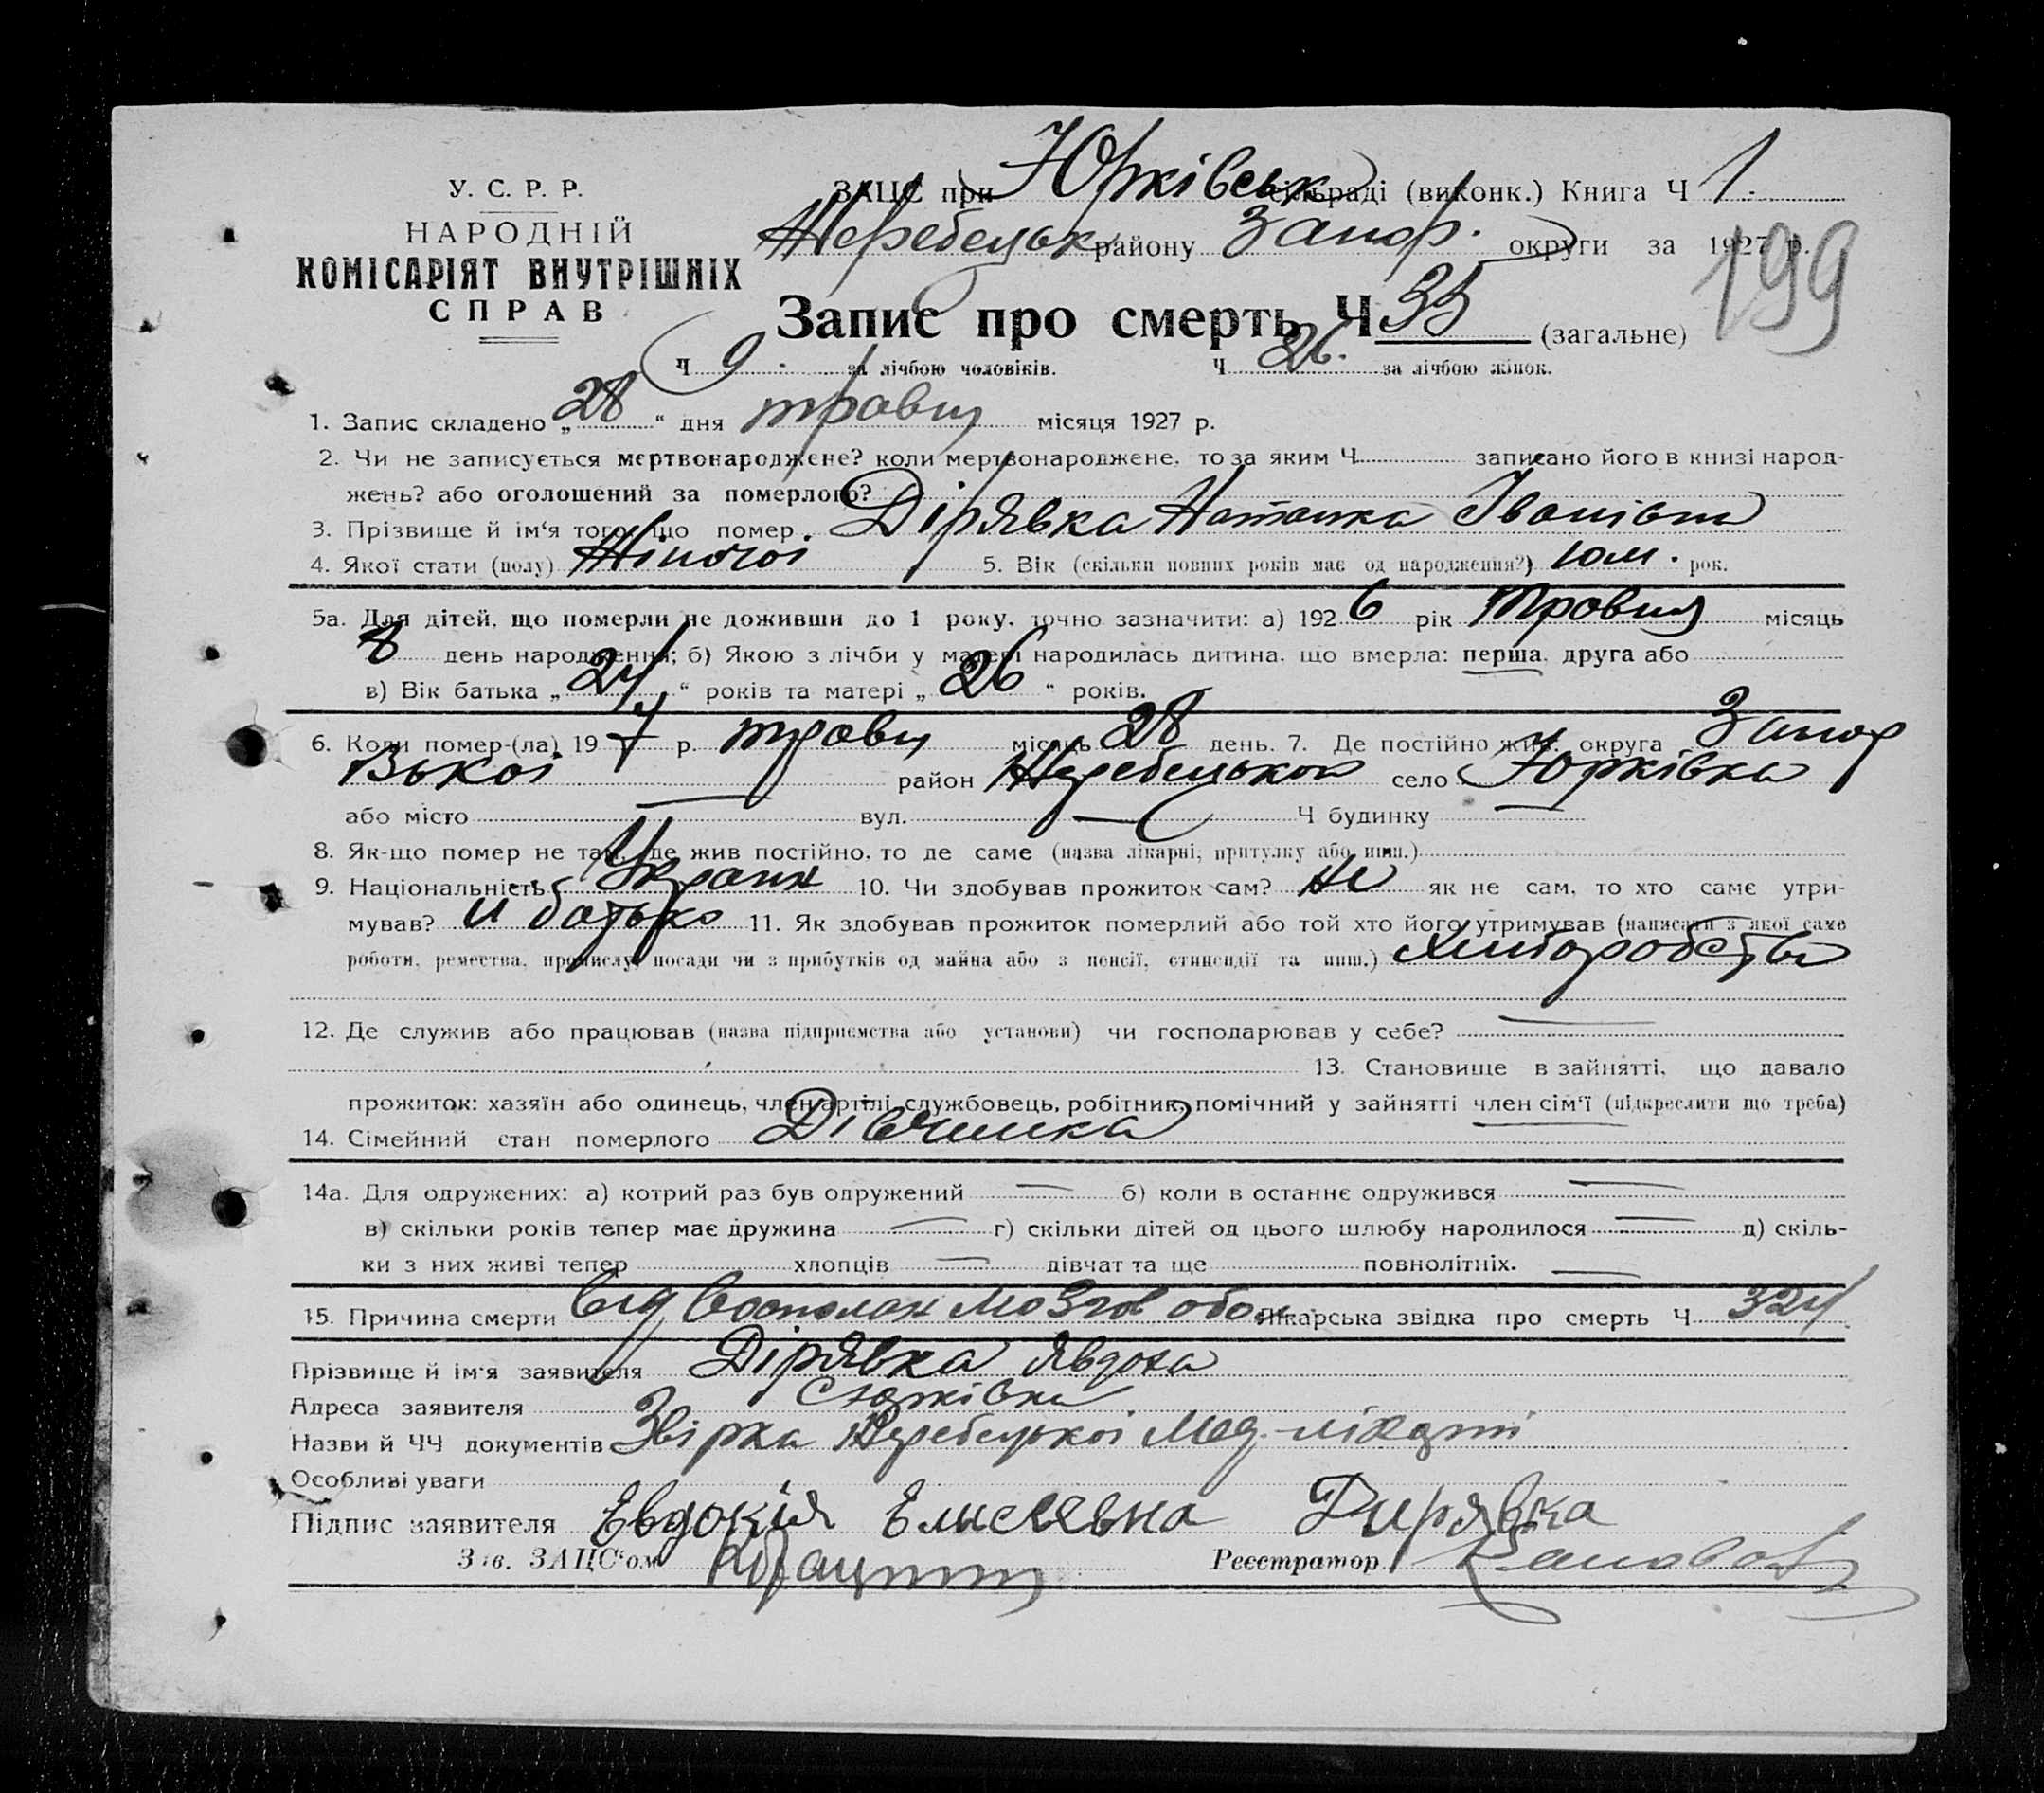 У. С. Р. Р.
НАРОДНІЙ
КОМІСАРІЯТ ВНУТРІШНІХ
СПРАВ
ЗАЦС при Юрківськ сільраді (виконк.) Книга Ч 1.
Жеребецьк району Запор. округи за 1927 р.
199
Запис про смерть Ч 35 (загальне)
Ч 9. за лічбою чоловіків. Ч 26. за лічбою жінок.
1. Запис складено „28“ дня травня місяця 1927 р.
2. Чи не записується мертвонароджене? коли мертвонароджене, то за яким Ч записано його в книзі народ-
жень? або оголошений за померлого?
3. Прізвище й ім‘я того, що помер Дірявка Наталка Іванівна
4. Якої стати (полу) Жіночої 5. Вік (скільки повних років має од народження?) 1 рок.
5а. Для дітей, що померли не доживши до 1 року, точно зазначити: а) 1926 рік Травня місяць
8 день народження; б) Якою з лічби у матері народилась дитина, що вмерла: перша, друга або
в) Вік батька „24“ років та матері „26“ років.
6. Коли помер-(ла) 19 7 р. травн місяць 28 день. 7. Де постійно жив: округа Запор
ізької район Жеребецького село Юрківка
або місто — вул. — Ч будинку —
8. Як-що помер не там, де жив постійно, то де саме (назва лікарні, притулку або инш.)
9. Національність Украин 10. Чи здобував прожиток сам? Ні як не сам, то хто саме утри-
мував? батько 11. Як здобував прожиток померлий або той хто його утримував (написати з якої саме
роботи, ремества, промислу, посади чи з прибутків од майна або з пенсії, стипендії та инш.) хліборобство
12. Де служив або працював (назва підприємства або установи) чи господарював у себе? —
13. Становище в зайнятті, що давало
прожиток: хазяїн або одинець, член артілі, службовець, робітник, помічний у зайнятті член сім‘ї (підкреслити що треба)
14. Сімейний стан померлого Дівчинка
14а. Для одружених: а) котрий раз був одружений — б) коли в останнє одружився —
в) скільки років тепер має дружина — г) скільки дітей од цього шлюбу народилося — д) скіль-
ки з них живі тепер хлопців — дівчат та ще повнолітніх. —
15. Причина смерти Від Воспален Мозгов обол Лікарська звідка про смерть Ч 324
Прізвище й ім‘я заявителя Дірявка Явдоха
Адреса заявителя с Юрківка
Назви й ЧЧ документів Звірка Жеребецької Мед.
Особливі уваги
Підпис заявителя Евдокія Елисеевна Дирявка
Зав. ЗАЦС‘ом
Реєстратор